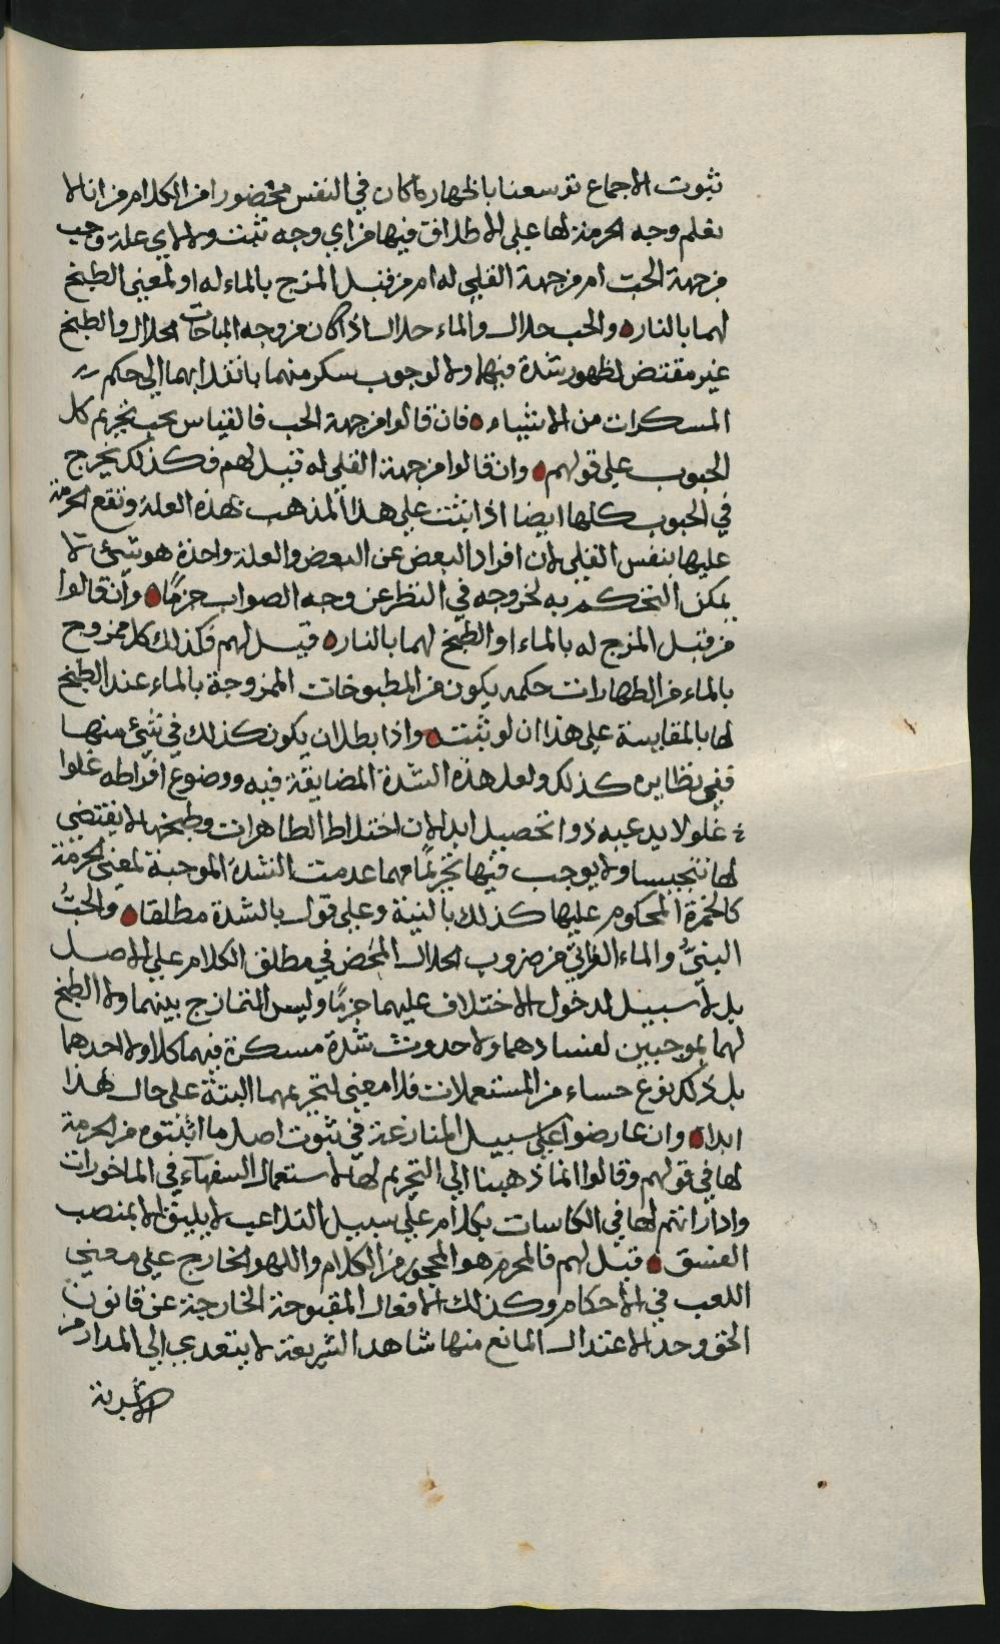 ثبوت الاجماع توسعنا باظهار ما كان في النفس محضورا من الكلام من انا لا
نعلم وجه الحرمة لها على الاطلاق فيها من اي وجه تثبت ولا لاي علة وجب
من جهة الحب ام من جهة القلي له ام من قبل المزج بالماء له او لمعنى الطبخ
لهما بالنار والحب حلال والماء حلال اذا كان من وجه المباحات الحلال والطبخ
غير مقتض لظهور شدة فيها ولا لوجوب سكر منهما بانقلابهما الى حكم
المسكرات من الاشياء فان قالوا من جهة الحب فالقياس يجب تحريم كل
الحبوب على قولهم وان قالوا من جهة القلي له قيل لهم فكذلك يخرج
في الحبوب كلها ايضا اذا ثبتت على هذا المذهب بهذه العلة وتقع الحرمة
عليها بنفس القلي لان افراد البعض عن البعض والعلة واحدة هو شيء لا
يمكن التحكم به لخروجه في النظر عن وجه الصواب جزما وان قالوا
من قبل المزج له بالماء او الطبخ لهما بالنار قيل لهم فكذلك كل ممزوج
بالماء من الطهارات حكمه يكون من المطبوخات الممزوجة بالماء عند الطبخ
لها بالمقايسة على هذا ان لو ثبتت واذا بطل ان يكون كذلك في شيء منها
ففي نظايره كذلك ولعل هذه الشدة المضايقة فيه ووضوع افراطه غلوا
غلو لا يدعيه ذوا تحصيل ابدا لان اختلاط الطاهرات وطبخها لا يقتضي
لها تنجيسا ولا يوجب فيها تحريما مهما عدمت الشدة الموجبة لمعنى الحرمة
كالخمرة المحكوم عليها كذلك بالنية وعلى قول بالشدة مطلقا والحب
البني والماء القراني من ضروب الحلال المحض في مطلق الكلام على الاصل
بل لا سبيل لدخول الاختلاف عليهما جزما وليس التمازج بينهما ولا الطبخ
لهما بموجبين لفسادهما ولا حدوث شدة مسكرة فيهما كلا ولا احدهما
بل ذلك نوع حساء من المستعملات فلا معنى لتحريمهما البتة على حال هذا
ابدا وان عارضوا على سبيل المنازعة في ثبوت اصل ما اثبتوه من الحرمة
لها في قولهم وقالوا انما ذهبنا الى التحريم لها لاستعمال السفهاء في الماخورات
وادارانتم لها في الكاسات بكلام على سبيل التلاعب لا يليق الا بمنصب
الفسق قيل لهم فالمحرم هو المحجور من الكلام واللهو الخارج على معنى
اللعب في الاحكام وكذلك الافعال المقبوحة الخارجة عن قانون
الحق وحد الاعتدال المانع منها شاهد الشريعة لا يتعدى الى المدار من
الاشربة